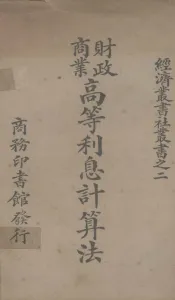 經濟叢書社叢書之二
財政
商業
高等利息計算法
商務印書館發行